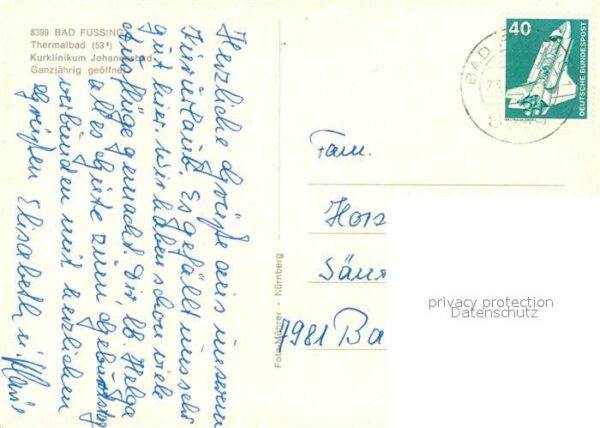 8399 BAD FÜSSING
Thermalbad (53°)
Kurklinikum Johannesbad
Ganzjährig geöffnet
Herzliche Grüße aus unserem
Kurürlaub. Es gefällt uns sehr
gut hier. Wir haben schon viele
Ausflüge gemacht. Dir, lb. Helga
alles Gute zum Geburtstag
verbunden mit herzlichen
Grüßen Elisabeth u.
Foto-Münzer - Nürnberg
40
DEUTSCHE BUNDESPOST
BAD
Fam.
Hors
7981 Ba
privacy protection
Datenschutz